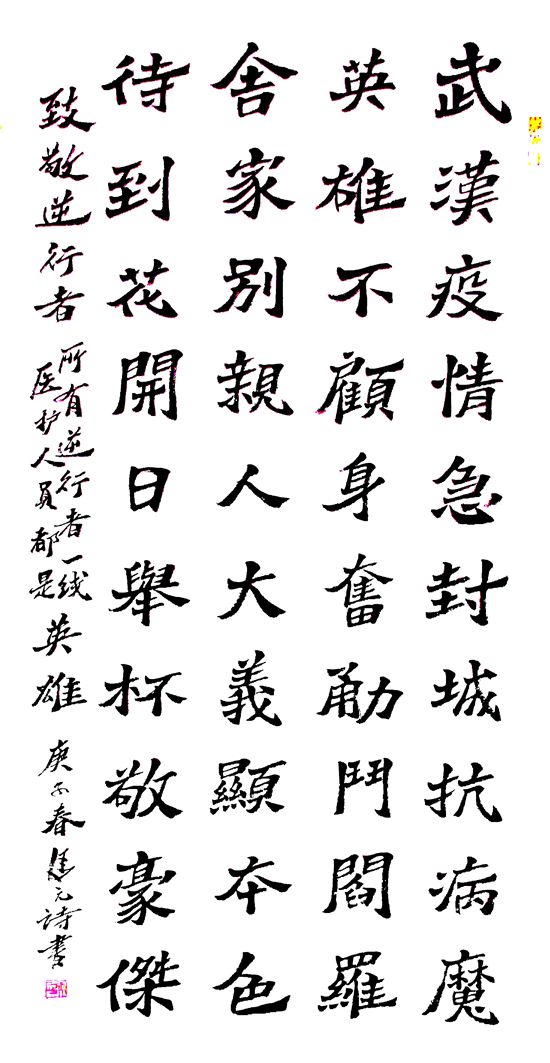 武漢疫情急封城抗病魔
英雄不顧身奮勈鬥閻羅
舍家別親人大義顯本色
待到花開日舉杯敬豪傑
致敬逆行者
所有逆行者一线
医护人員都是
英雄
庚子春 元诗书